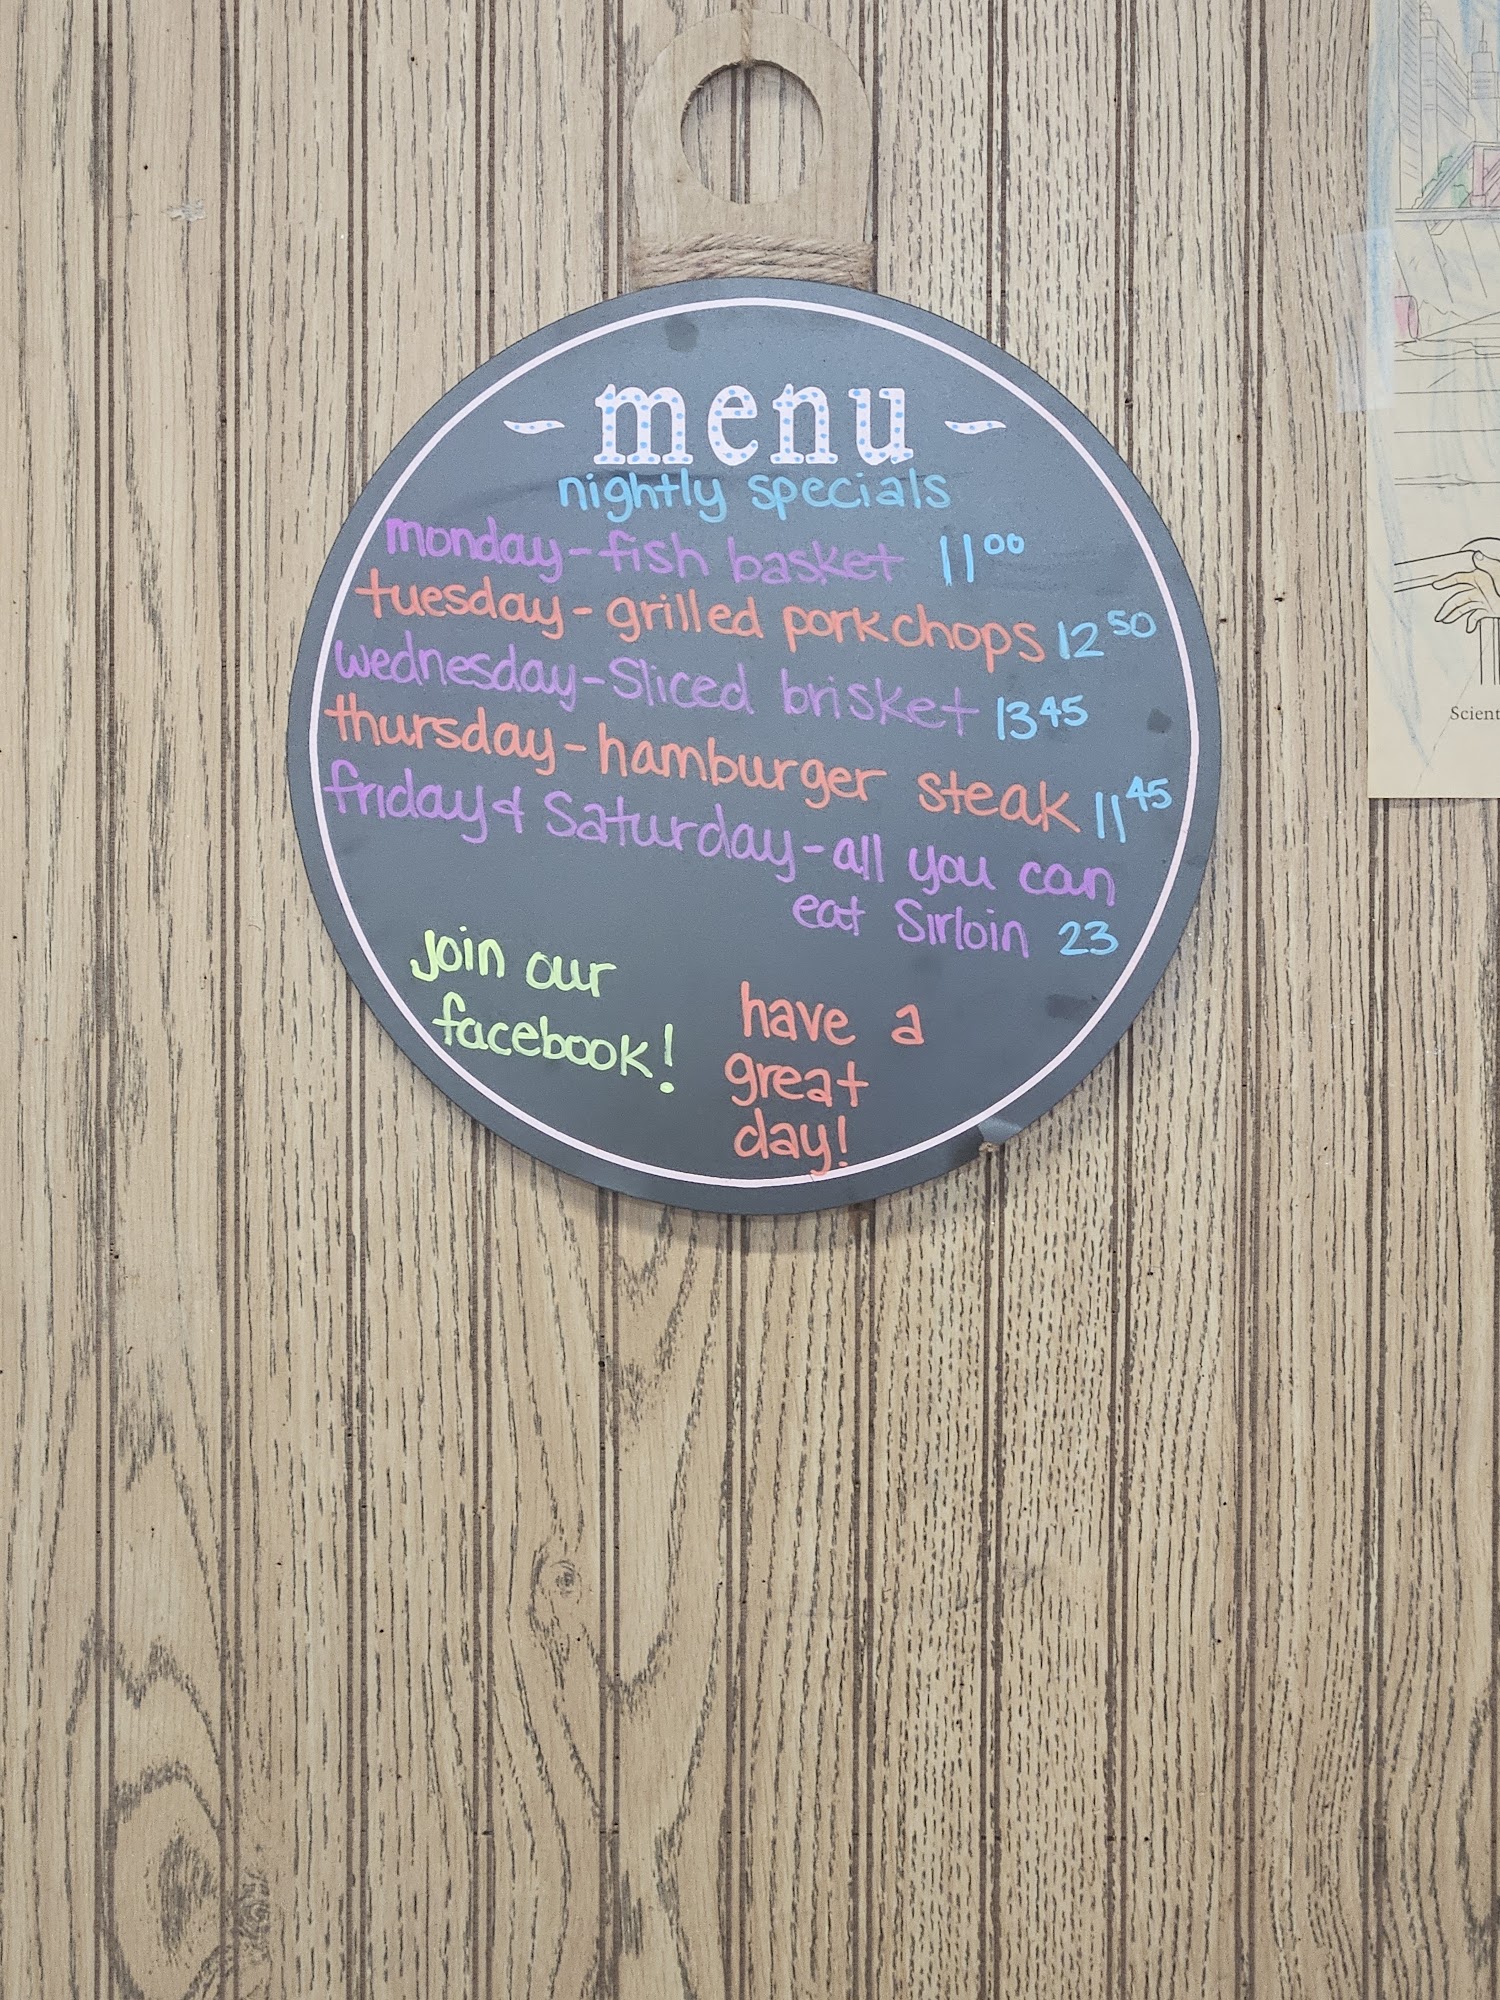 - menu -
nightly specials
monday - fish basket 11 00
tuesday - grilled pork chops 12 50
wednesday - Sliced brisket 13 45
thursday - hamburger steak 11 45
friday & Saturday - all you can
eat Sirloin 23
Join our
facebook!
have a
great
day!
Scient